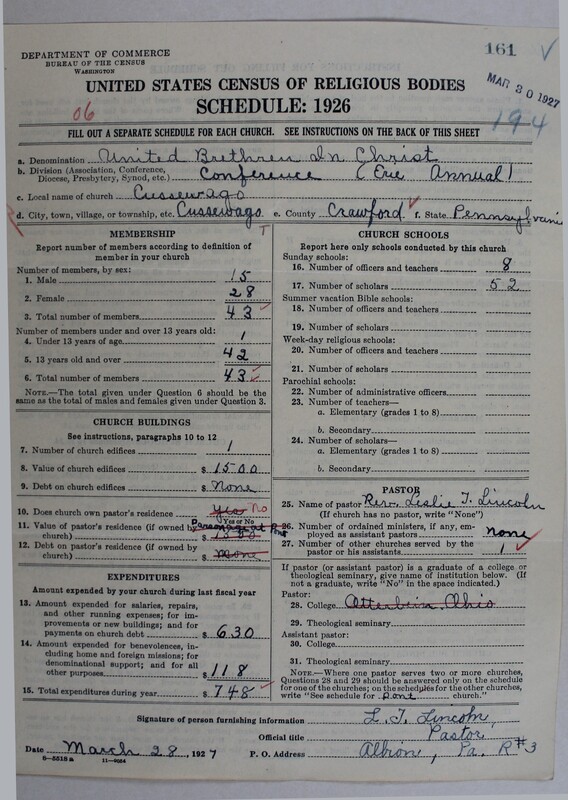 161
DEPARTMENT OF COMMERCE
BUREAU OF THE CENSUS
WASHINGTON
MAR 30 1927
UNITED STATES CENSUS OF RELIGIOUS BODIES
SCHEDULE: 1926
06
194
FILL OUT A SEPARATE SCHEDULE FOR EACH CHURCH. SEE INSTRUCTIONS ON THE BACK OF THIS SHEET
a. Denomination United Brethren In Christ
b. Division (Association, Conference, Diocese, Presbytery, Synod, etc.) Conference (Erie Annual)
c. Local name of church Cussewago
d. City, town, village, or township, etc. Cussewago e. County Crawford f. State Pennsylvania
MEMBERSHIP
Report number of members according to definition of
member in your church
Number of members, by sex:
1. Male 15
2. Female 28
3. Total number of members 43
Number of members under and over 13 years old:
4. Under 13 years of age 1
5. 13 years old and over 42
6. Total number of members 43
NOTE.—The total given under Question 6 should be the
same as the total of males and females given under Question 3.
CHURCH BUILDINGS
See instructions, paragraphs 10 to 12
7. Number of church edifices 1
8. Value of church edifices $1500
9. Debt on church edifices $ None
10. Does church own pastor's residence Yes No
Yes or No
11. Value of pastor's residence (if owned by
church) $
12. Debt on pastor's residence (if owned by
church) $ None
EXPENDITURES
Amount expended by your church during last fiscal year
13. Amount expended for salaries, repairs,
and other running expenses; for im-
provements or new buildings; and for
payments on church debt $630
14. Amount expended for benevolences, in-
cluding home and foreign missions; for
denominational support; and for all
other purposes $118
15. Total expenditures during year $748
CHURCH SCHOOLS
Report here only schools conducted by this church
Sunday schools:
16. Number of officers and teachers 8
17. Number of scholars 52
Summer vacation Bible schools:
18. Number of officers and teachers
19. Number of scholars
Week-day religious schools:
20. Number of officers and teachers
21. Number of scholars
Parochial schools:
22. Number of administrative officers
23. Number of teachers—
a. Elementary (grades 1 to 8)
b. Secondary
24. Number of scholars—
a. Elementary (grades 1 to 8)
b. Secondary
PASTOR
25. Name of pastor Rev. Leslie T. Lincoln
(If church has no pastor, write "None")
26. Number of ordained ministers, if any, em-
ployed as assistant pastors none
27. Number of other churches served by the
pastor or his assistants 1
If pastor (or assistant pastor) is a graduate of a college or
theological seminary, give name of institution below. (If
not a graduate, write "No" in the space indicated.)
Pastor:
28. College Otterbein Ohio
29. Theological seminary
Assistant pastor:
30. College
31. Theological seminary
NOTE.—Where one pastor serves two or more churches,
Questions 28 and 29 should be answered only on the schedule
for one of the churches; on the schedules for the other churches,
write "See schedule for Pont church."
Signature of person furnishing information L. T. Lincoln,
Official title Pastor
Date March 28, 1927 P. O. Address Albion, Pa. R#3
8-5518 a 11-9034